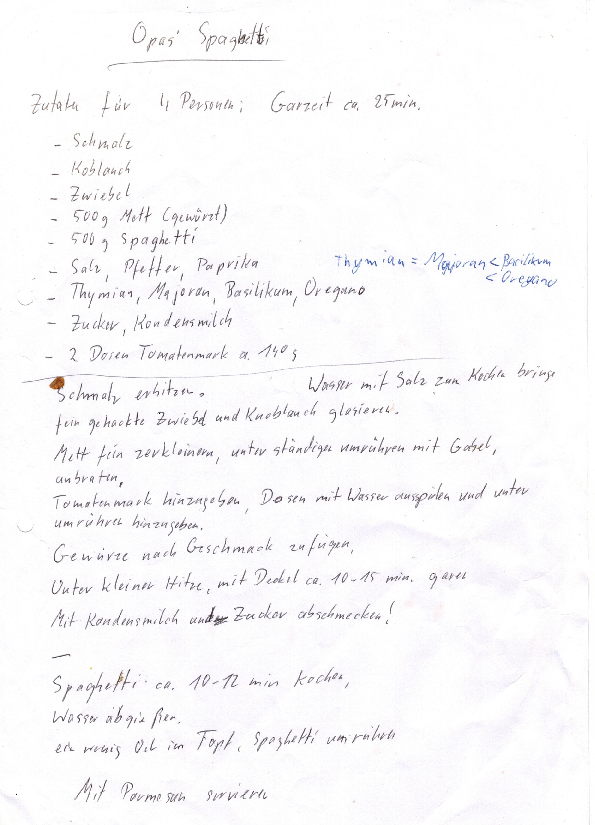 Opas' Spaghetti
Zutaten für 4 Personen; Garzeit ca. 25 min.
- Schmalz
- Koblauch
- Zwiebel
- 500g Mett (gewürzt)
- 500g Spaghetti
- Salz, Pfeffer, Paprika
Thymian = Majoran < Basilikum
< Oregano
- Thymian, Majoran, Basilikum, Oregano
- Zucker, Kondensmilch
- 2 Dosen Tomatenmark a. 140g
Schmalz erhitzen. Wasser mit Salz zum Kochen bringe
fein gehackte Zwiebel und Knoblauch glasieren.
Mett fein zerkleinern, unter ständiger umrühren mit Gabel,
anbraten,
Tomatenmark hinzugeben, Dosen mit Wasser ausspülen und unter
umrühren hinzugeben.
Gewürze nach Geschmack zufügen,
Unter kleiner Hitze, mit Deckel ca. 10-15 min. garen
Mit Kondensmilch und Zucker abschmecken!
—
Spaghetti ca. 10-12 min kochen,
Wasser abgießen.
ein wenig Oel im Topf, Spaghetti umrühren
Mit Parmesan servieren